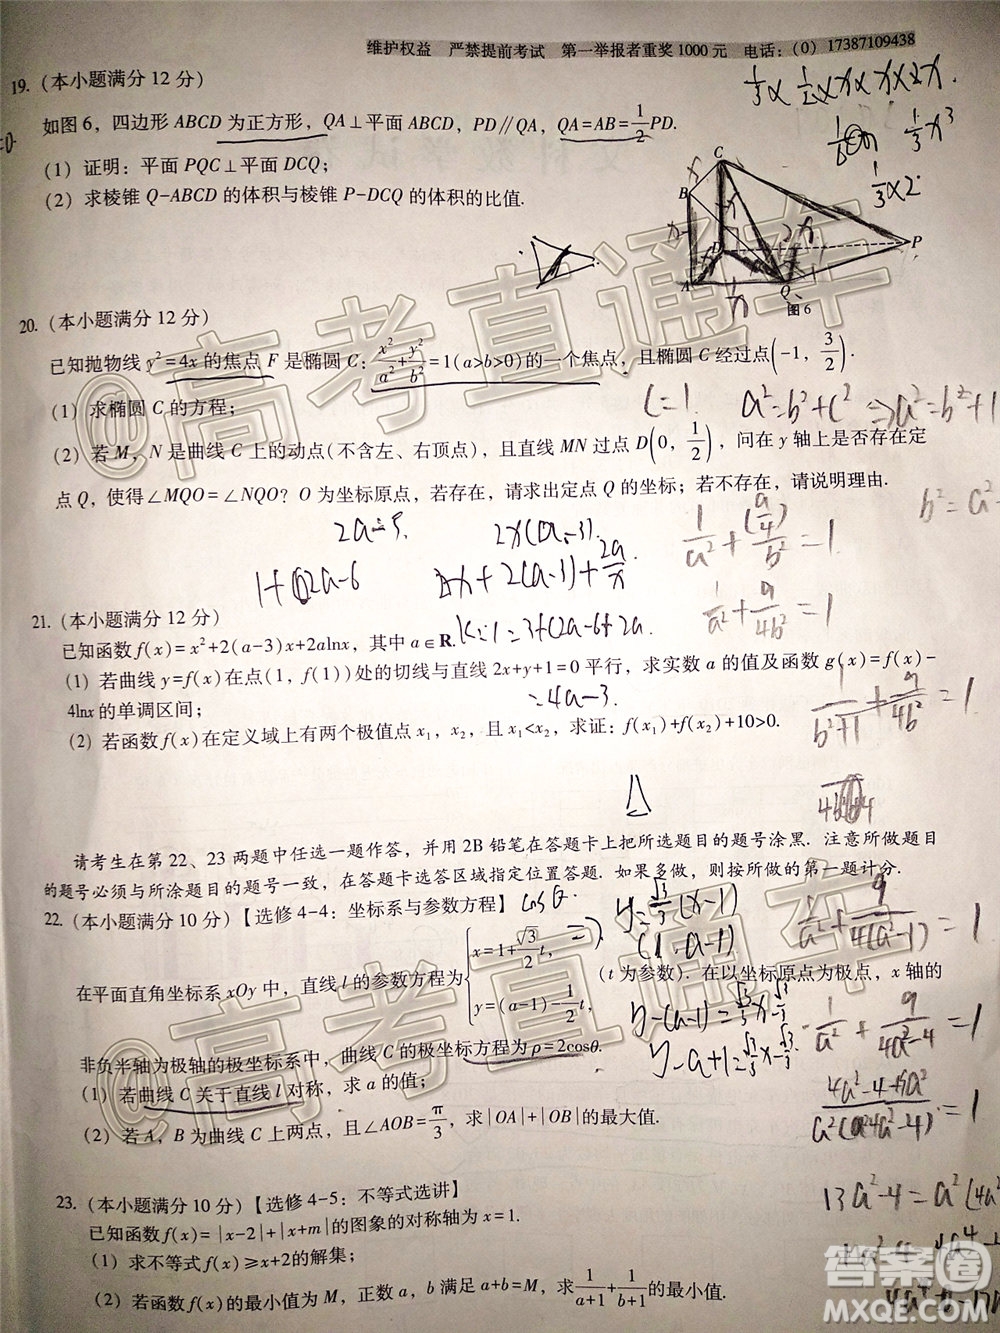 维护权益 严禁提前考试 第一举报者重奖1000元 电话：(0) 17387109438
19. (本小题满分 12 分)
如图 6，四边形 ABCD 为正方形，QA⊥平面 ABCD，PD∥QA，QA=AB=1/2PD.
(1) 证明：平面 PQC⊥平面 DCQ；
(2) 求棱锥 Q-ABCD 的体积与棱锥 P-DCQ 的体积的比值.
1/3 × 1/2 × x × x × 2x.
1/3x³
1/3×2
C
B
D
P
A
Q
图 6
20. (本小题满分 12 分)
已知抛物线 y²=4x 的焦点 F 是椭圆 C：x²/a²+y²/b²=1(a>b>0)的一个焦点，且椭圆 C 经过点(-1, 3/2).
(1) 求椭圆 C 的方程；
C=1. a²=b²+c² ⇒a²=b²+1
(2) 若 M，N 是曲线 C 上的动点(不含左、右顶点)，且直线 MN 过点 D(0, 1/2)，问在 y 轴上是否存在定
点 Q，使得∠MQO=∠NQO？O 为坐标原点，若存在，请求出定点 Q 的坐标；若不存在，请说明理由.
b²=a²-
2x(a-3)
1/a²+(9/4)/b²=1
2x+2(a-3)+2a/x
1/a²+9/4b²=1
21. (本小题满分 12 分)
已知函数 f(x)=x²+2(a-3)x+2alnx，其中 a∈R.
(1) 若曲线 y=f(x)在点(1, f(1))处的切线与直线 2x+y+1=0 平行，求实数 a 的值及函数 g(x)=f(x)-
4lnx 的单调区间；
=4a-3
1/b²+1+9/4b²=1
(2) 若函数 f(x)在定义域上有两个极值点 x₁，x₂，且 x₁<x₂，求证：f(x₁)+f(x₂)+10>0.
请考生在第 22、23 两题中任选一题作答，并用 2B 铅笔在答题卡上把所选题目的题号涂黑. 注意所做题目
的题号必须与所涂题目的题号一致，在答题卡选答区域指定位置答题. 如果多做，则按所做的第一题计分.
22. (本小题满分 10 分)【选修 4-4：坐标系与参数方程】
cosθ
y=√3/3(x-1)
(1, a-1)
1/a²+9/4(a²-1)=1
在平面直角坐标系 xOy 中，直线 l 的参数方程为{x=1+√3/2t, y=(a-1)-1/2t, (t 为参数). 在以坐标原点为极点，x 轴的
y-(a-1)=√3/3x-√3/3
1/a²+9/4a²-4=1
非负半轴为极轴的极坐标系中，曲线 C 的极坐标方程为 ρ=2cosθ.
y-a+1=√3/3x-√3/3
(1) 若曲线 C 关于直线 l 对称，求 a 的值；
(2) 若 A，B 为曲线 C 上两点，且∠AOB=π/3，求|OA|+|OB|的最大值.
13a²-4=a²(4a²
23. (本小题满分 10 分)【选修 4-5：不等式选讲】
已知函数 f(x)=|x-2|+|x+m|的图象的对称轴为 x=1.
(1) 求不等式 f(x)≥x+2的解集；
(2) 若函数 f(x)的最小值为 M，正数 a，b 满足 a+b=M，求1/a+1+1/b+1的最小值.
@高考直通车
@高考直通车
答案圈
MXQE.COM